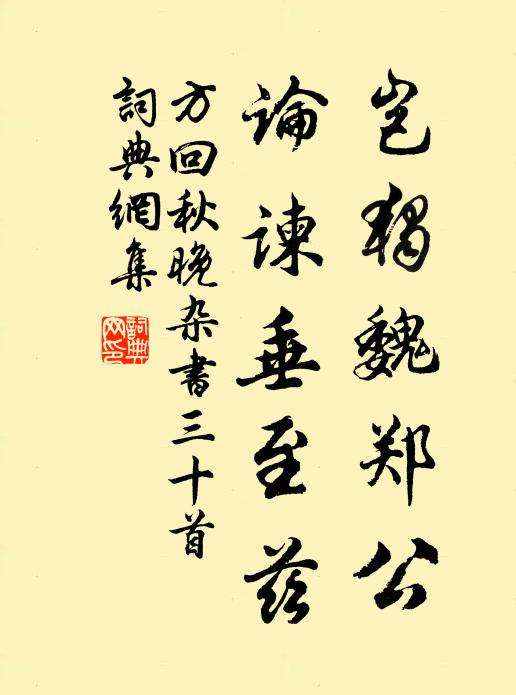 岂独魏郑公
論諫垂至兹
方回秋晚杂書三十首
詞典網集
詞典網印